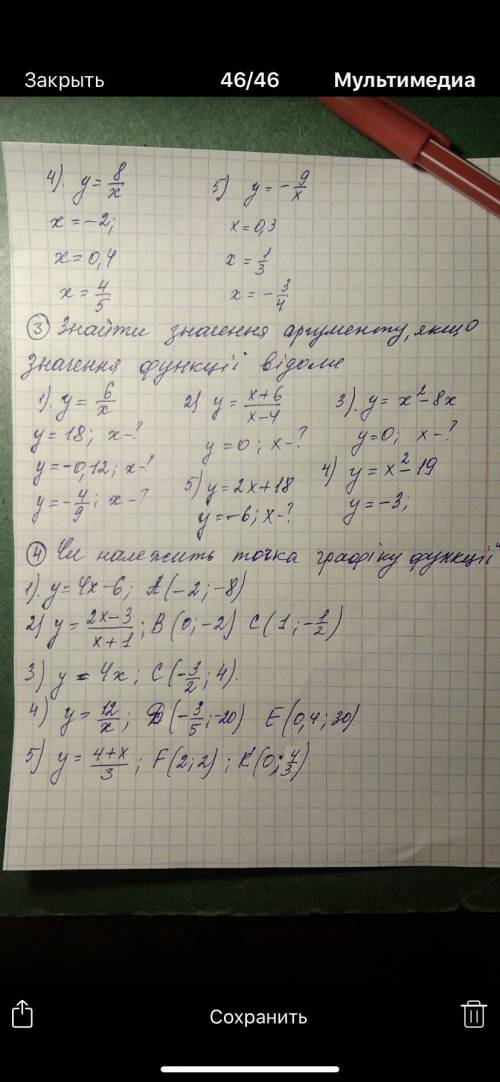 Закрыть 46/46 Мультимедиа
4). y = 8/x 5) y = -9/x
x = -2; x = 0,3
x = 0,4 x = 1/3
x = 4/5 x = -3/4
③ Знайти значення аргументу, якщо
значення функції відоме
1). y = 6/x 2) y = (x+6)/(x-4) 3). y = x² - 8x
y = 18; x-? y = 0; x-? y = 0; x-?
y = -0,12; x-? 5) y = 2x+18 4) y = x² - 19
y = -4/9; x-? y = -6; x-? y = -3;
④ Чи належить точка графіку функції
1). y = 4x-6; A(-2; -8)
2) y = (2x-3)/(x+1); B(0; -2) C(1; -1/2)
3) y = 4x; C(-3/2; 4).
4) y = 12/x; D(-3/5; -20) E(0,4; 30)
5) y = (4+x)/3; F(2; 2); K(0; 4/3)
Сохранить